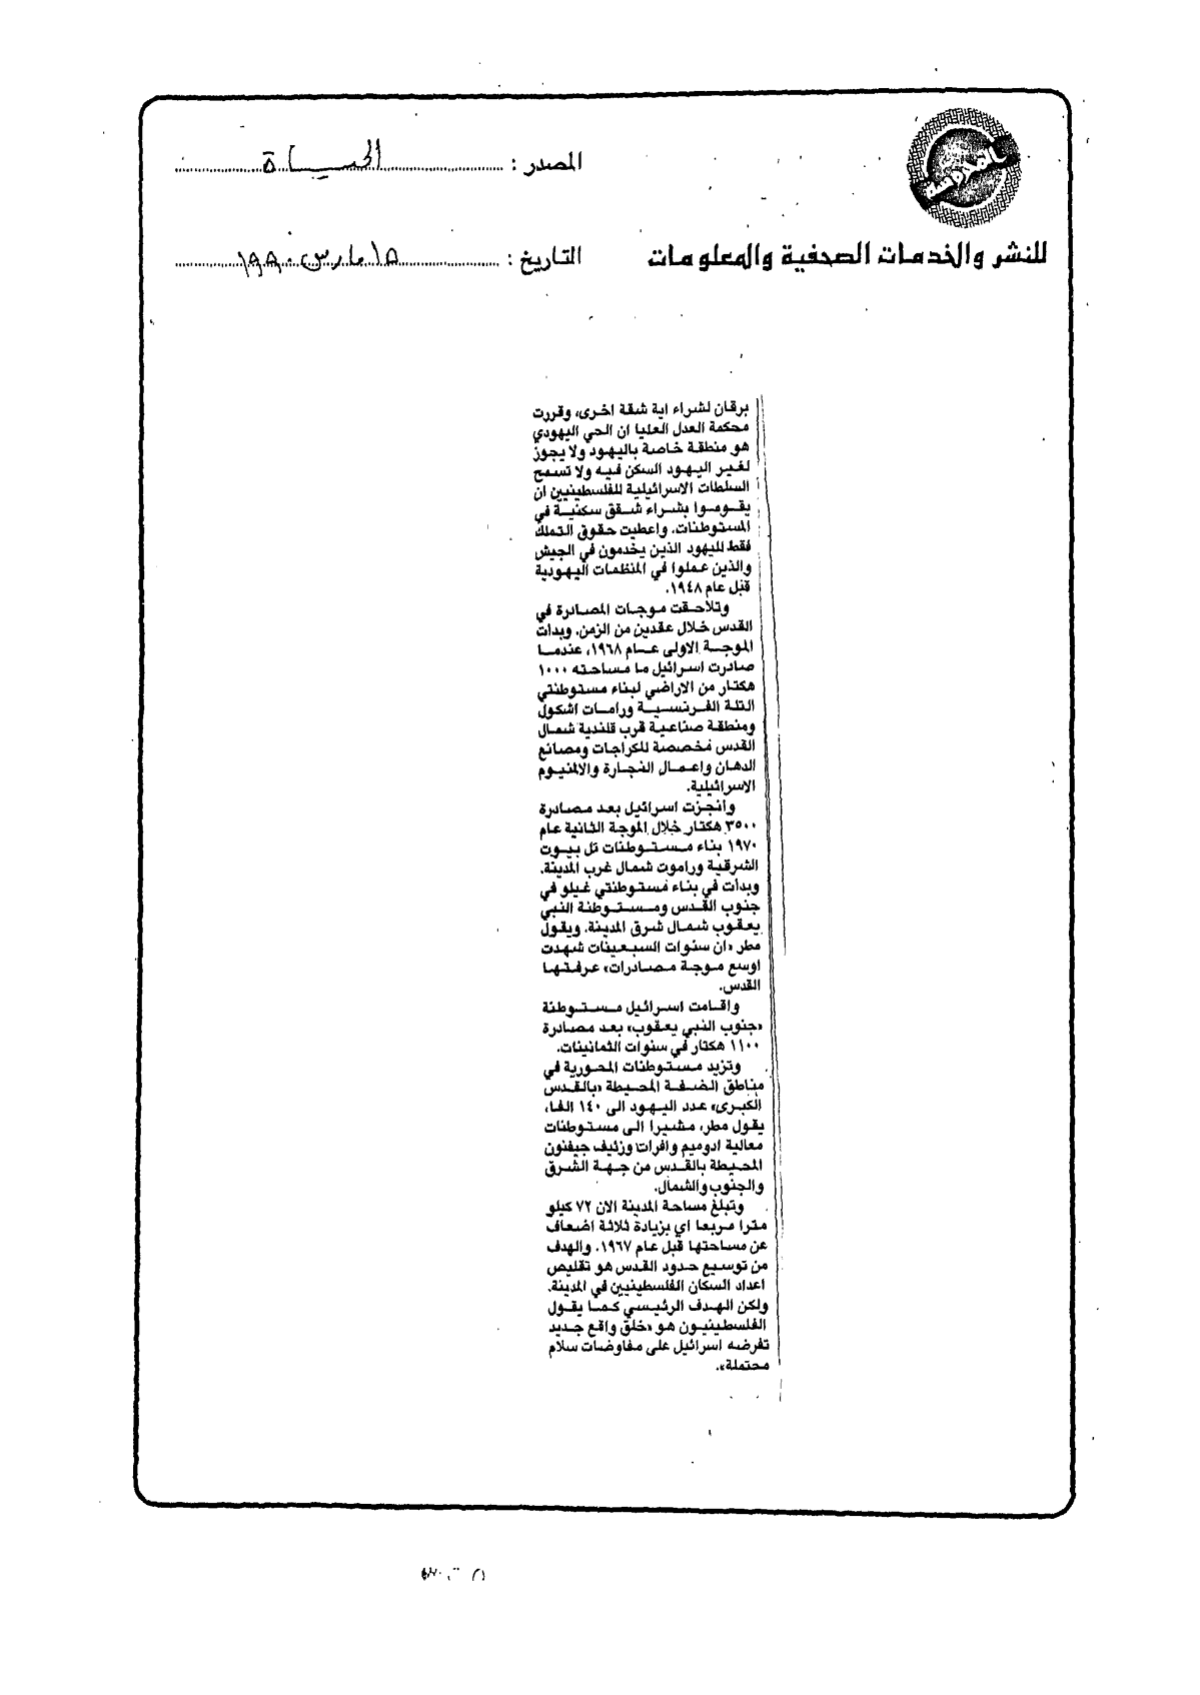 المصدر : الحياة
للنشر والخدمات الصحفية والمعلومات
التاريخ : ١٥ مارس ١٩٩٠
برقان لشراء اية شقة اخرى، وقررت
محكمة العدل العليا ان الحي اليهودي
هو منطقة خاصة باليهود ولا يجوز
لغير اليهود السكن فيه ولا تسمح
السلطات الاسرائيلية للفلسطينيين ان
يقوموا بشراء شقق سكنية في
المستوطنات. واعطيت حقوق التملك
فقط لليهود الذين يخدمون في الجيش
والذين عملوا في المنظمات اليهودية
قبل عام ١٩٤٨.
وتلاحقت موجات المصادرة في
القدس خلال عقدين من الزمن. وبدأت
الموجة الاولى عام ١٩٦٨، عندما
صادرت اسرائيل ما مساحته ١٠٠٠
هكتار من الاراضي لبناء مستوطنتي
التلة الفرنسية ورامات اشكول
ومنطقة صناعية قرب قلندية شمال
القدس مخصصة للكراجات ومصانع
الدهان واعمال النجارة والالمنيوم
الاسرائيلية.
وانجزت اسرائيل بعد مصادرة
٣٥٠٠ هكتار خلال الموجة الثانية عام
١٩٧٠ بناء مستوطنات تل بيوت
الشرقية وراموت شمال غرب المدينة.
وبدأت في بناء مستوطنتي غيلو في
جنوب القدس ومستوطنة النبي
يعقوب شمال شرق المدينة. ويقول
مطر «ان سنوات السبعينات شهدت
اوسع موجة مصادرات» عرفتها
القدس.
واقامت اسرائيل مستوطنة
«جنوب النبي يعقوب» بعد مصادرة
١١٠٠ هكتار في سنوات الثمانينات.
وتزيد مستوطنات المحورية في
مناطق الضفة المحيطة «بالقدس
الكبرى» عدد اليهود الى ١٤٠ الفا،
يقول مطر، مشيرا الى مستوطنات
معالية ادوميم وافرات وزئيف جيفنون
المحيطة بالقدس من جهة الشرق
والجنوب والشمال.
وتبلغ مساحة المدينة الان ٧٢ كيلو
مترا مربعا اي بزيادة ثلاثة اضعاف
عن مساحتها قبل عام ١٩٦٧. والهدف
من توسيع حدود القدس هو تقليص
اعداد السكان الفلسطينيين في المدينة.
ولكن الهدف الرئيسي كما يقول
الفلسطينيون هو «خلق واقع جديد
تفرضه اسرائيل على مفاوضات سلام
محتملة».